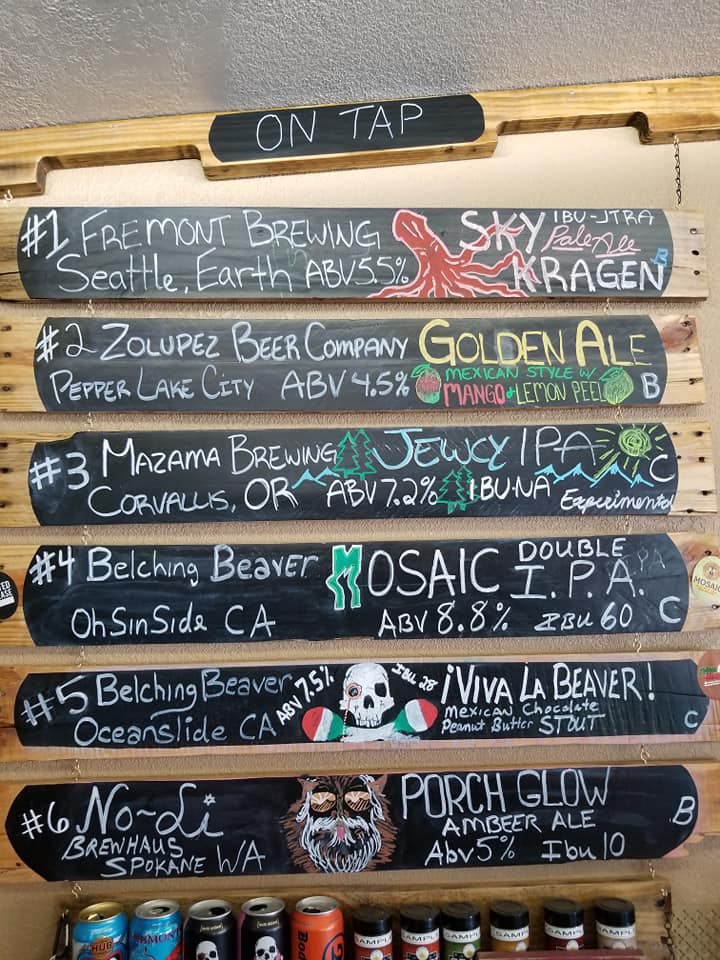 ON TAP
#1 FREMONT BREWING SKY IBU-JTRA
Pale Ale
Seattle, Earth ABV 5.5% KRAGEN B
#2 ZOLUPEZ BEER COMPANY GOLDEN ALE
PEPPER LAKE CITY ABV 4.5% MEXICAN STYLE W/
MANGO + LEMON PEEL B
#3 MAZAMA BREWING JEWCY IPA
CORVALLIS, OR ABV 7.2% IBU-NA Experimental C
#4 Belching Beaver MOSAIC DOUBLE
I.P.A.
OhSinSide CA ABV 8.8% IBU 60 C
#5 Belching Beaver ABV 7.5% IBU 28 ¡VIVA LA BEAVER!
Mexican Chocolate
Oceanslide CA Peanut Butter STOUT C
#6 No-Li PORCH GLOW
BREWHAUS AMBEER ALE B
SPOKANE WA Abv 5% Ibu 10
MOSAIC
HUB
SAMPL
SAMPL
SAMPL
SAMPL